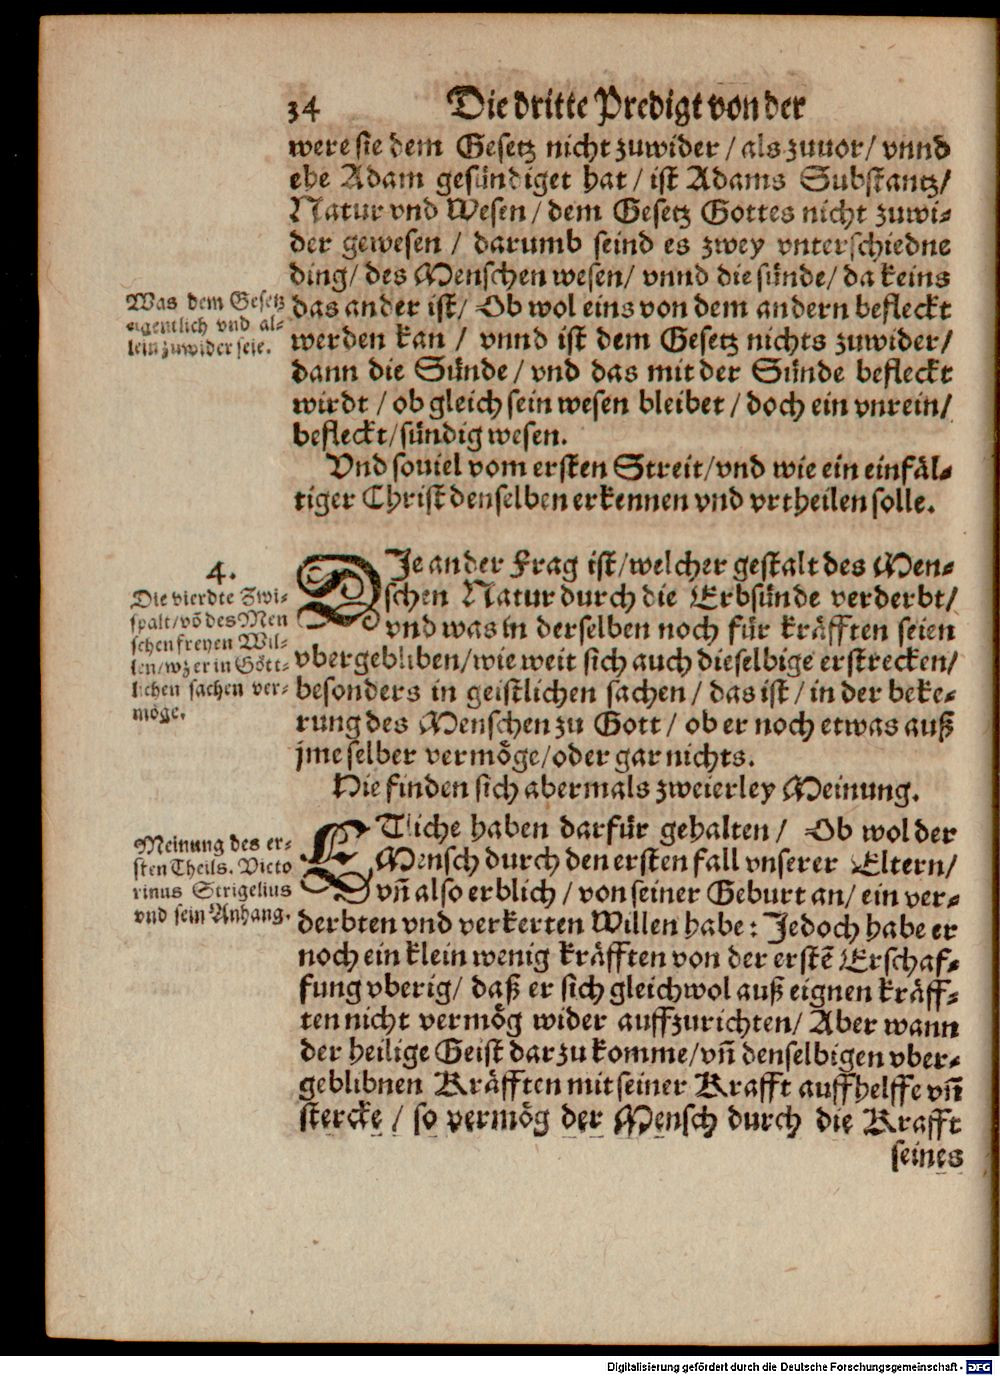 34 Die dritte Predigt von der
were sie dem Gesetz nicht zuwider / als zuuor / vnnd
ehe Adam gesündiget hat / ist Adams Substantz /
Natur vnd Wesen / dem Gesetz Gottes nicht zuwi-
der gewesen / darumb seind es zwey vnterschiedne
ding / des Menschen wesen / vnnd die sünde / da keins
das ander ist / Ob wol eins von dem andern befleckt
werden kan / vnnd ist dem Gesetz nichts zuwider /
dann die Sünde / vnd das mit der Sünde befleckt
wirdt / ob gleich sein wesen bleibet / doch ein vnrein /
befleckt / sündig wesen.
Was dem Gesetz
eigentlich vnd al-
lein zuwider seie.
Vnd souiel vom ersten Streit / vnd wie ein einfäl-
tiger Christ denselben erkennen vnd vrtheilen solle.
4.
Die vierdte Zwi-
spalt / võ des Men
schen freyen Wil-
len / wz er in Gött-
lichen sachen ver-
möge.
DIe ander Frag ist / welcher gestalt des Men-
schen Natur durch die Erbsünde verderbt /
vnd was in derselben noch für kräfften seien
vbergebliben / wie weit sich auch dieselbige erstrecken /
besonders in geistlichen sachen / das ist / in der beke-
rung des Menschen zu Gott / ob er noch etwas auß
jme selber vermöge / oder gar nichts.
Hie finden sich abermals zweierley Meinung.
Meinung des er-
sten Theils. Victo
rinus Strigelius
vnd sein Anhang.
ETliche haben darfür gehalten / Ob wol der
Mensch durch den ersten fall vnserer Eltern /
vñ also erblich / von seiner Geburt an / ein ver-
derbten vnd verkerten Willen habe : Jedoch habe er
noch ein klein wenig kräfften von der erstẽ Erschaf-
fung vberig / daß er sich gleichwol auß eignen kräff-
ten nicht vermög wider auffzurichten / Aber wann
der heilige Geist darzu komme / vñ denselbigen vber-
geblibnen Kräfften mit seiner Krafft auffhelffe vñ
stercke / so vermög der Mensch durch die Krafft
seines
Digitalisierung gefördert durch die Deutsche Forschungsgemeinschaft - DFG